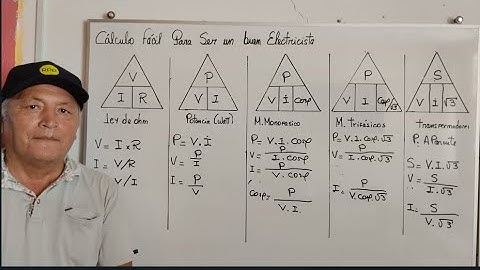 Cálculo Fácil Para Ser un buen Electricista
V
I R
Ley de ohm
V = I x R
I = V/R
V/I
P
V I
Potencia (Watt)
P = V.I
V = P/I
I = P/V
P
V I Cosφ
M. Monofasico
P = V.I.cosφ
V = P/I.cosφ
I = P/V.cosφ
Cosφ = P/V.I.
P
V I Cosφ √3
M. Trifásicos
P = V.I.cosφ.√3
V = P/I.cosφ.√3
I = P/V.cosφ.√3
S
V I √3
Transformadores
P. Aparente
S = V.I.√3
V = S/I.√3
I = S/V.√3